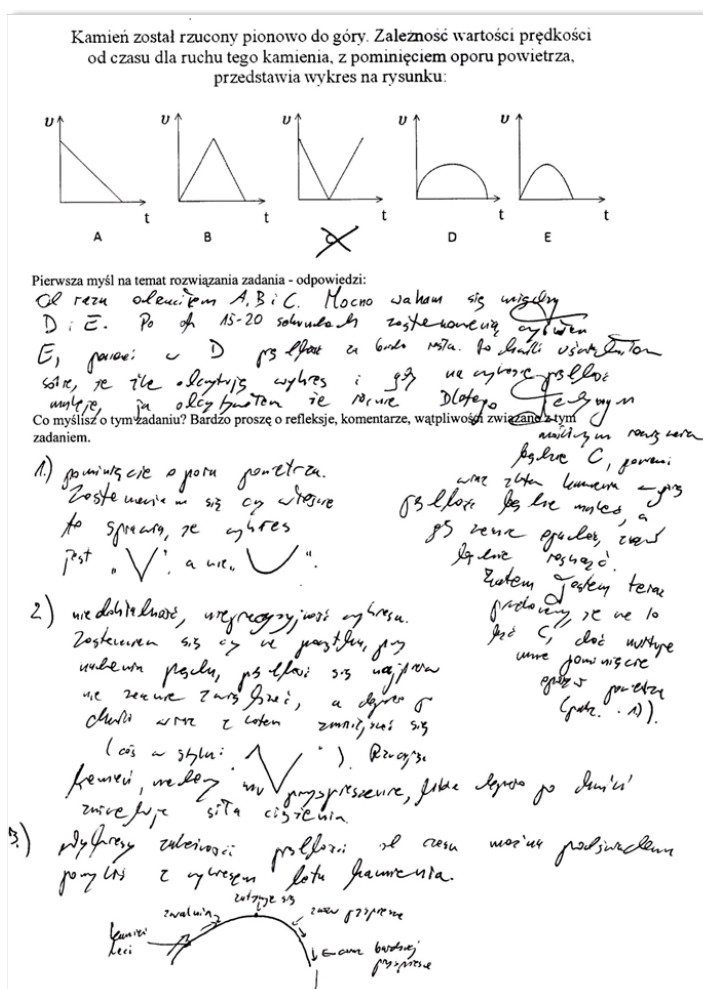 Kamień został rzucony pionowo do góry. Zależność wartości prędkości
od czasu dla ruchu tego kamienia, z pominięciem oporu powietrza,
przedstawia wykres na rysunku:
υ υ υ υ υ
t t t t t
A B C D E
Pierwsza myśl na temat rozwiązania zadania - odpowiedzi:
Od razu A, B i C. Mocno waham się między
D i E. Po ok 15-20 sekundach
E, ponieważ w D prędkość za
sobie, że źle odczytuję wykres i gdy na wykresie prędkość
maleje, ja że rośnie. Dlatego
Co myślisz o tym zadaniu? Bardzo proszę o refleksje, komentarze, wątpliwości związane z tym
zadaniem.
będzie C, ponieważ
wraz z lotem kamienia w górę
prędkość będzie maleć, a
gdy zacznie opadać, znów
będzie rosnąć.
Zatem jestem teraz
przekonany, że
C, choć
mnie pominięcie
oporu powietrza
(pkt. 1)).
1.) pominięcie oporu powietrza.
Zastanawiam się czy właśnie
to sprawia, że wykres
jest „V”, a nie „U”.
2) niedokładność, nieprecyzyjność wykresu.
Zastanawiam się czy na początku, przy
nadaniu pędu, prędkość się najpierw
nie zacznie zwiększać, a dopiero po
chwili wraz z lotem zmniejszać się
(coś w stylu: ). Rzucając
kamień, nadajemy mu przyspieszenie, które dopiero po chwili
siła ciążenia.
3.) Wykresy zależności prędkości od czasu można podświadomie
pomylić z wykresem lotu kamienia.
zatrzymuje się
zwalnia
znów przyspiesza
kamień
leci
coraz bardziej
przyspiesza